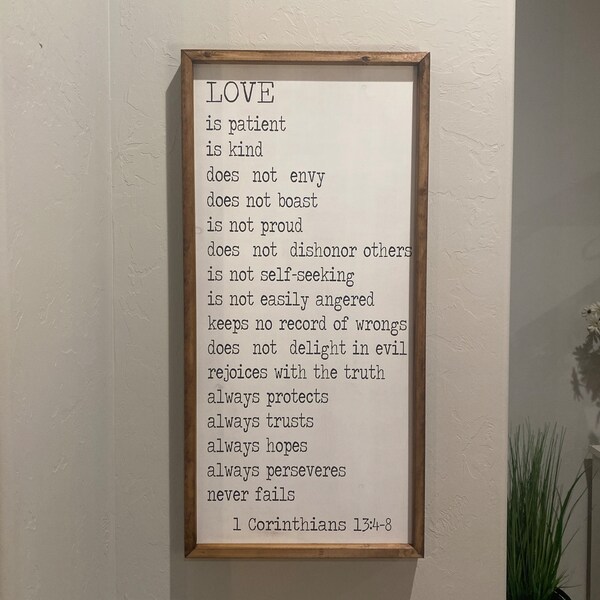 LOVE
is patient
is kind
does not envy
does not boast
is not proud
does not dishonor others
is not self-seeking
is not easily angered
keeps no record of wrongs
does not delight in evil
rejoices with the truth
always protects
always trusts
always hopes
always perseveres
never fails
1 Corinthians 13:4-8